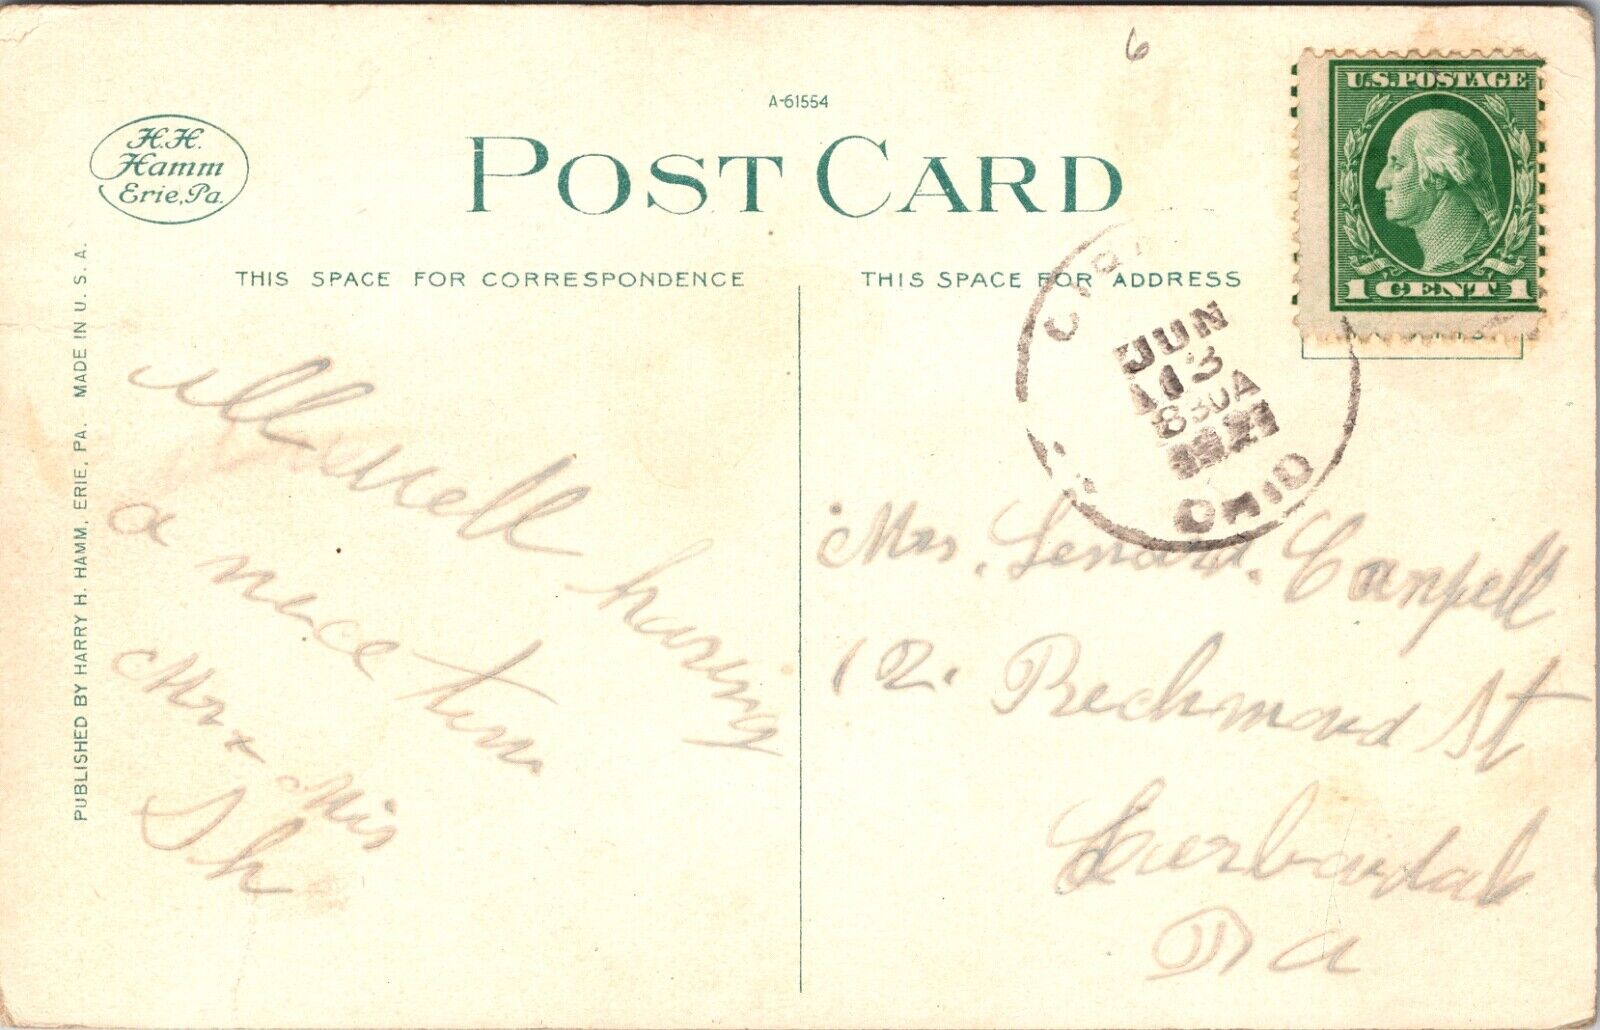 6
A-61554
H.H.
Hamm
Erie, Pa.
POST CARD
THIS SPACE FOR CORRESPONDENCE
THIS SPACE FOR ADDRESS
U.S. POSTAGE
1 CENT 1
JUN
13
830A
1921
OHIO
PUBLISHED BY HARRY H. HAMM, ERIE, PA. MADE IN U.S.A.
All well having
a nice time
Mr + Mis
Sh
Mrs. Lenard. Canpell
12. Rechmond St
Pa